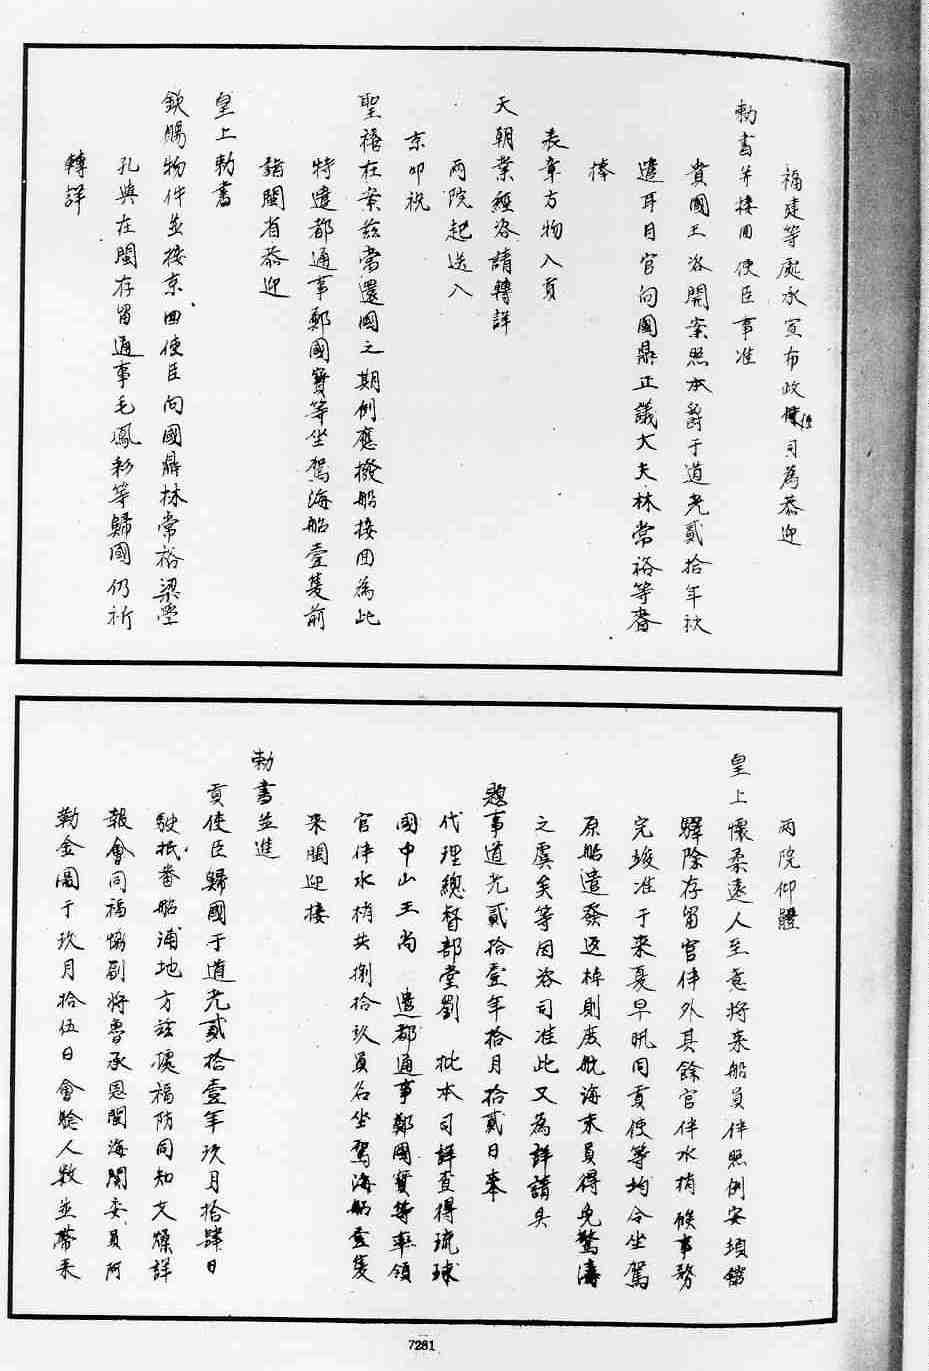 福建等處承宣布政使司為恭迎
勅書並接回使臣事准
貴國王咨開案照本爵于道光貳拾年秋
遣耳目官向國鼎正議大夫林常裕等齎
捧
表章方物入貢
天朝業經咨請轉詳
兩院起送入
京叩祝
聖禧在案茲當還國之期例應撥船接回為此
特遣都通事鄭國寶等坐駕海船壹隻前
詣閩省恭迎
皇上勅書
欽賜物件並接京回使臣向國鼎林常裕梁學
孔與在閩存留通事毛鳳彩等歸國仍祈
轉詳
兩院仰體
皇上懷柔遠人至意將來船員伴照例安頓館
驛除存留官伴外其餘官伴水梢候事務
完竣准于來夏早汛同貢使等均令坐駕
原船遣發返棹則庶航海末員得免驚濤
之虞矣等因咨司准此又為詳請具
題事道光貳拾壹年拾月拾貳日奉
代理總督部堂劉 批本司詳查得琉球
國中山王尚 遣都通事鄭國寶等率領
官伴水梢共捌拾玖員名坐駕海船壹隻
來閩迎接
勅書並進
貢使臣歸國于道光貳拾壹年玖月拾肆日
駛抵番船浦地方茲據福防同知文燦詳
報會同福協副將魯承恩閩海關委員阿
勒金圖于玖月拾伍日會驗人數並帶來
7281